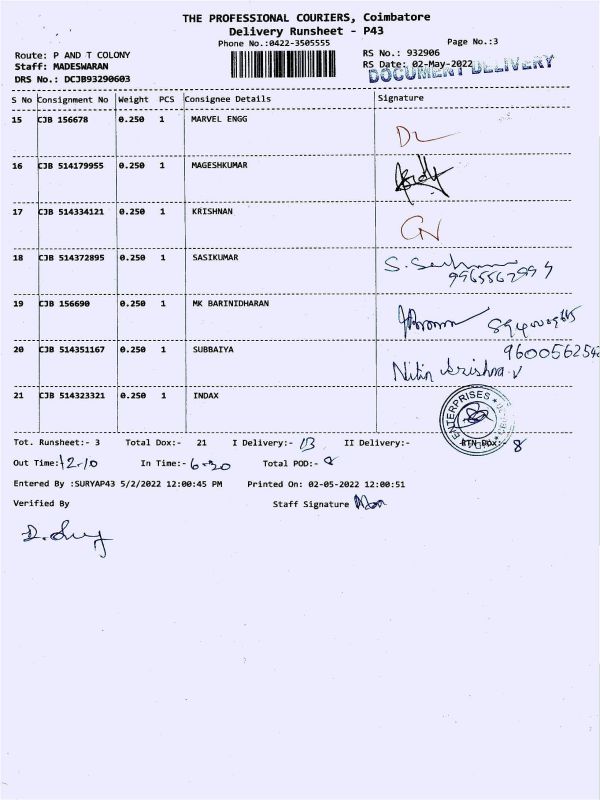 THE PROFESSIONAL COURIERS, Coimbatore
Delivery Runsheet - P43
Phone No.:0422-3505555
Page No.:3
Route: P AND T COLONY
RS No.: 932906
Staff: MADESWARAN
RS Date: 02-May-2022
DOCUMENT DELIVERY
DRS No.: DCJB93290603
S No Consignment No Weight PCS Consignee Details Signature
15 CJB 156678 0.250 1 MARVEL ENGG
DL
16 CJB 514179955 0.250 1 MAGESHKUMAR
17 CJB 514334121 0.250 1 KRISHNAN
18 CJB 514372895 0.250 1 SASIKUMAR
19 CJB 156690 0.250 1 MK BARINIDHARAN
20 CJB 514351167 0.250 1 SUBBAIYA
Nitin Krishna.V
21 CJB 514323321 0.250 1 INDAX
ENTERPRISES
Tot. Runsheet:- 3 Total Dox:- 21 I Delivery:- 13 II Delivery:- RTN Dox:- 8
Out Time:- 12-10 In Time:- 6-30 Total POD:-
Entered By :SURYAP43 5/2/2022 12:00:45 PM Printed On: 02-05-2022 12:00:51
Verified By Staff Signature